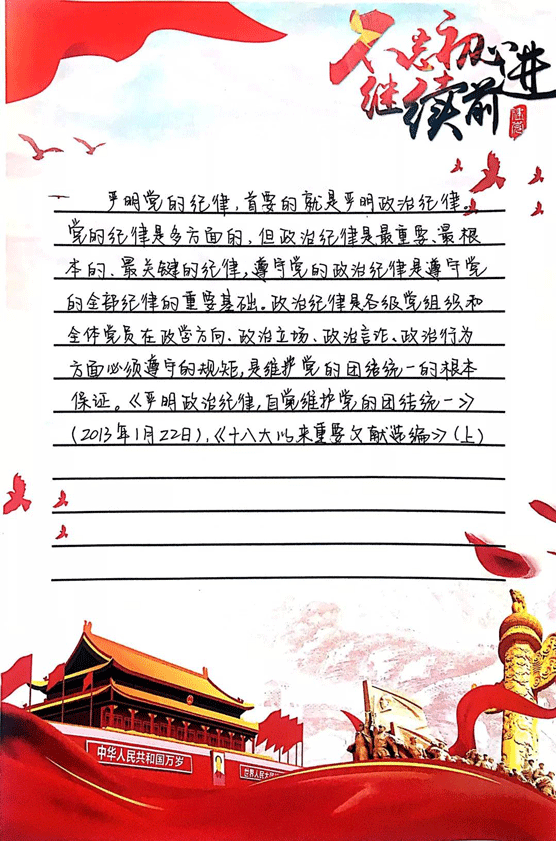 不忘初心
继续前进
严明党的纪律，首要的就是严明政治纪律。
党的纪律是多方面的，但政治纪律是最重要、最根
本的、最关键的纪律，遵守党的政治纪律是遵守党
的全部纪律的重要基础。政治纪律是各级党组织和
全体党员在政治方向、政治立场、政治言论、政治行为
方面必须遵守的规矩，是维护党的团结统一的根本
保证。《严明政治纪律，自觉维护党的团结统一》
（2013年1月22日），《十八大以来重要文献选编》（上）
中华人民共和国万岁
世界人民大